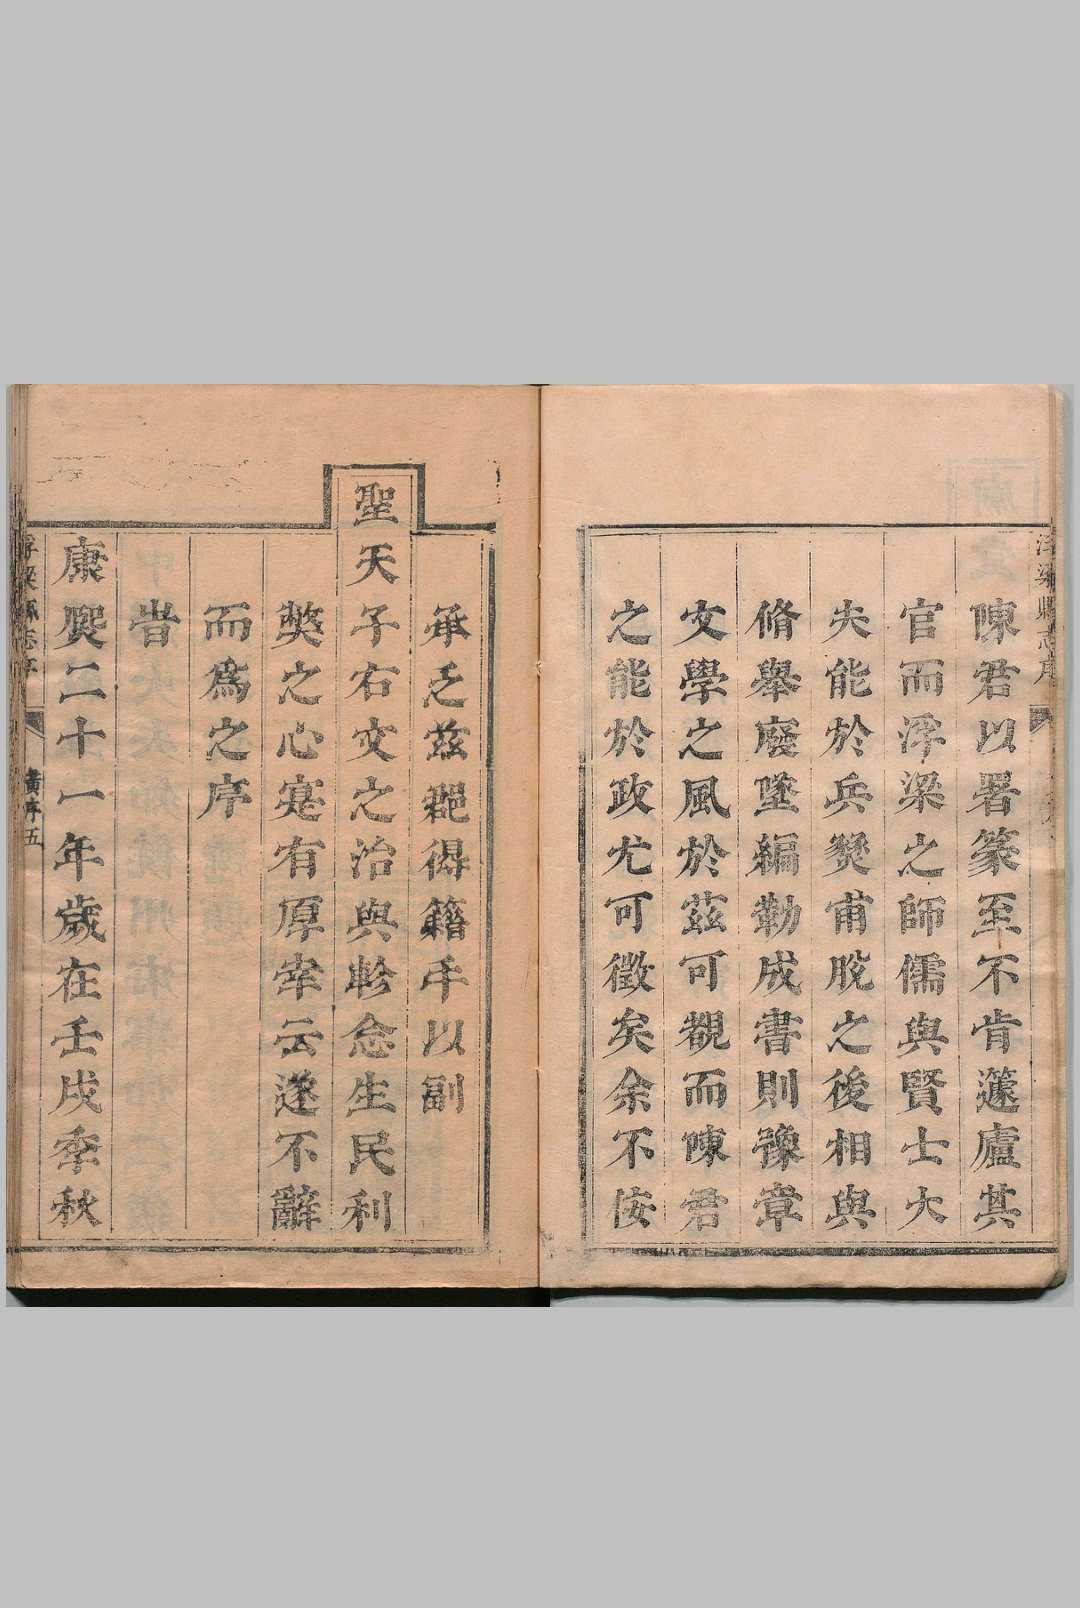 陳君以署篆至不肯蘧廬其
官而浮梁之師儒與賢士大
夫能於兵燹甫脫之後相與
脩舉廢墜編勒成書則豫章
文學之風於茲可覩而陳君
之能於政尤可徵矣余不佞
承乏茲郡得籍手以副
聖天子右文之治與軫念生民利
獘之心寔有厚幸云遂不辭
而為之序
旹
康熙二十一年歲在壬戌季秋
浮梁縣志序
浮梁縣志序
黃序五